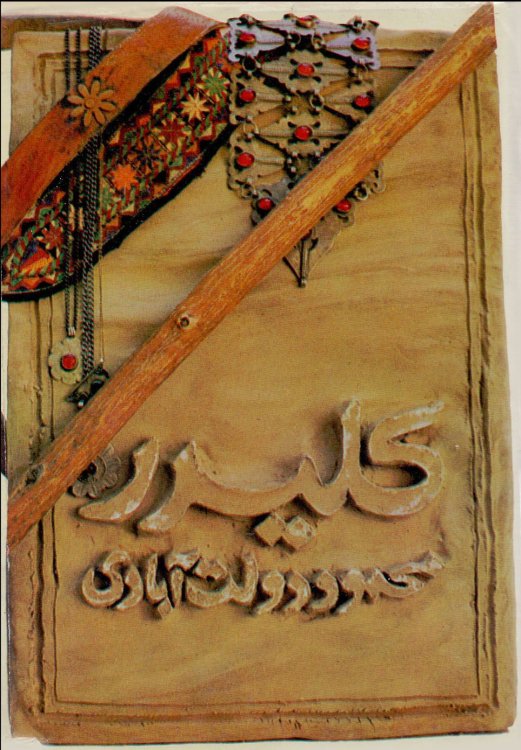 کلیدر
محمود دولت‌آبادی